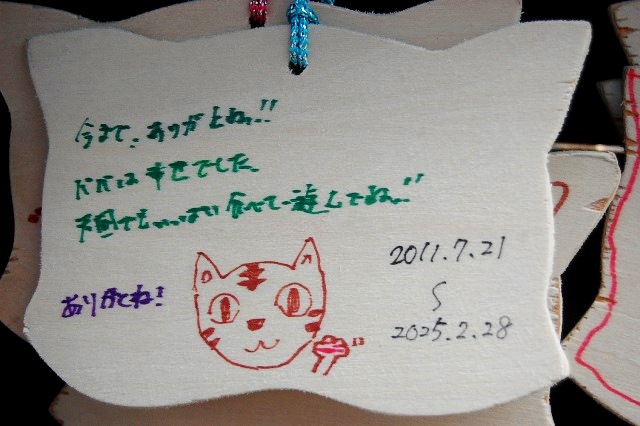 今まで、ありがとねっ!!
パパは幸せでした。
天国でもいっぱい食べて遊んでねっ!!
ありがとね!
2011.7.21
〜
2025.2.28